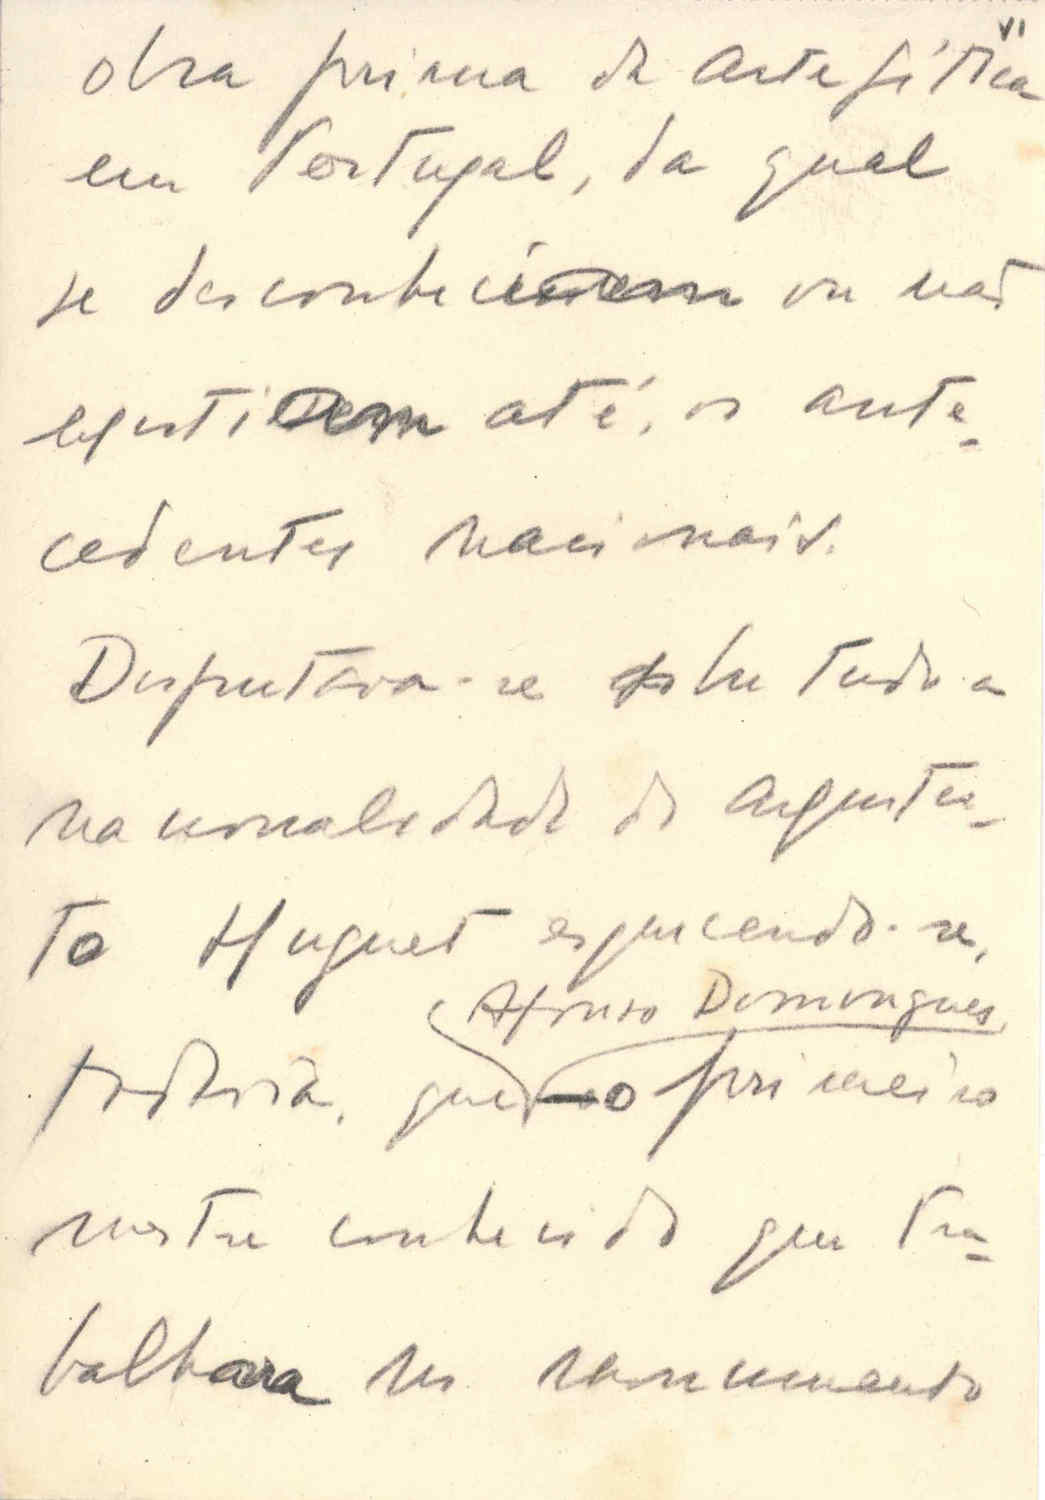 VI
obra prima da arte gótica
em Portugal, da qual
se desconheciam ou não
até, os ante-
cedentes nacionais.
Disputava-se sobretudo a
nacionalidade do arquitec-
to Huguet esquecendo-se,
Afonso Domingues,
todavia, que o primeiro
mestre conhecido que tra-
balhara no monumento